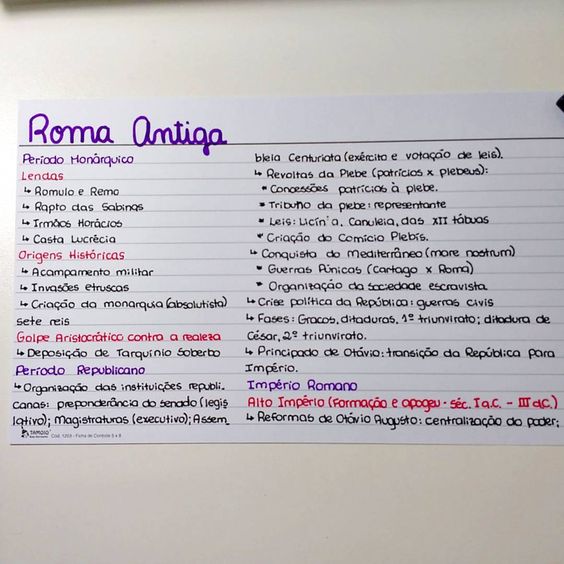 Roma Antiga
Período Monárquico
Lendas
↳ Romulo e Remo
↳ Rapto das Sabinas
↳ Irmãos Horácios
↳ Casta Lucrécia
Origens Históricas
↳ Acampamento militar
↳ Invasões etruscas
↳ Criação da monarquia (absolutista)
sete reis
Golpe Aristocrático contra a realeza
↳ Deposição de Tarquínio Soberbo
Período Republicano
↳ Organização das instituições republi.
canas: preponderância do senado (legis
lativo); Magistraturas (executivo); Assem.
bleia Centuriata (exército e votação de leis).
↳ Revoltas da Plebe (patrícios x plebeus):
* Concessões patrícios à plebe.
* Tributno da plebe: representante
* Leis: Licín'a, Canuleia, das XII tábuas
* Criação do Comício Plebis.
↳ Conquista do Mediterrâneo (mare nostrum)
* Guerras Púnicas (Cartago x Roma)
* Organização da sociedade escravista
↳ Crise política da República: guerras civis
↳ Fases: Gracos, ditaduras, 1º triunvirato; ditadura de
César, 2º triunvirato.
↳ Principado de Otávio: transição da República para
Império.
Império Romano
Alto Império (Formação e apogeu - séc. I a.C. - III d.C.)
↳ Reformas de Otávio Augusto: centralização do poder;
TAMOIO
Cód. 1203 - Ficha de Controle 5 x 8